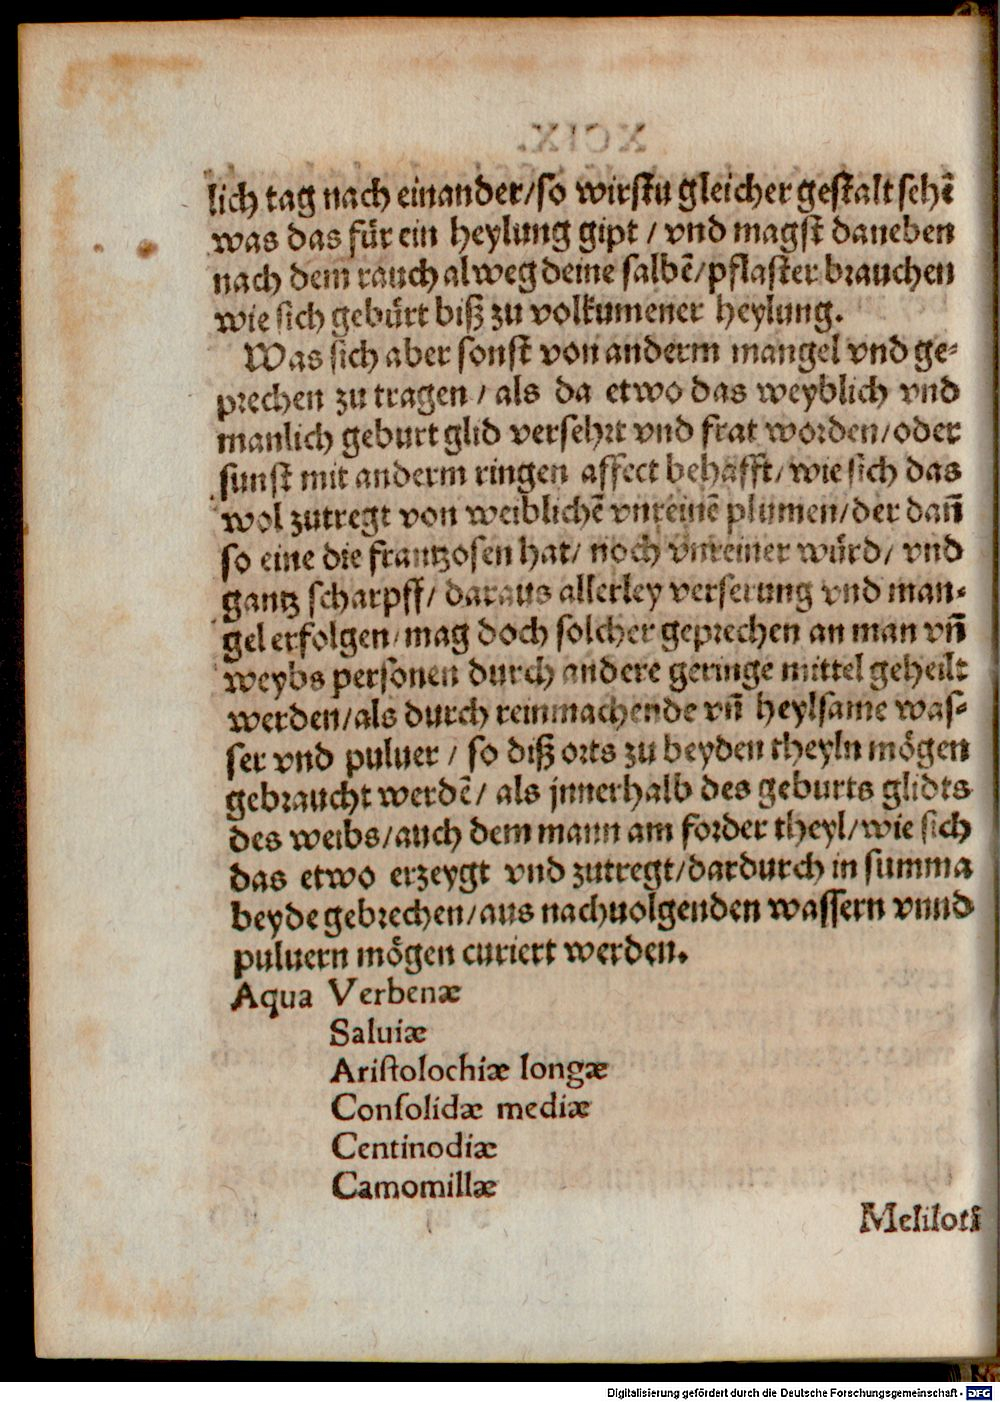 lich tag nach einander/so wirstu gleicher gestalt sehẽ
was das fuͤr ein heylung gipt / vnd magst daneben
nach dem rauch alweg deine salbẽ/pflaster brauchen
wie sich gebuͤrt biß zu volkumener heylung.
Was sich aber sonst von anderm mangel vnd ge-
prechen zu tragen / als da etwo das weyblich vnd
manlich geburt glid versehrt vnd frat worden/oder
sunst mit anderm ringen affect behafft/wie sich das
wol zutregt von weiblichẽ vnreinẽ plumen/der dañ
so eine die frantzosen hat/ noch vnreiner wuͤrd/ vnd
gantz scharpff/ daraus allerley verserung vnd man-
gel erfolgen/mag doch solcher geprechen an man vñ
weybs personen durch andere geringe mittel geheilt
werden/als durch reinmachende vñ heylsame was-
ser vnd puluer / so diß orts zu beyden theyln moͤgen
gebraucht werdẽ/ als jnnerhalb des geburts glidts
des weibs/auch dem mann am forder theyl/wie sich
das etwo erzeygt vnd zutregt/dardurch in summa
beyde gebrechen/aus nachuolgenden wassern vnnd
puluern moͤgen curiert werden.
Aqua Verbenæ
Saluiæ
Ariſtolochiæ longæ
Conſolidæ mediæ
Centinodiæ
Camomillæ
Meliloti
Digitalisierung gefördert durch die Deutsche Forschungsgemeinschaft - DFG